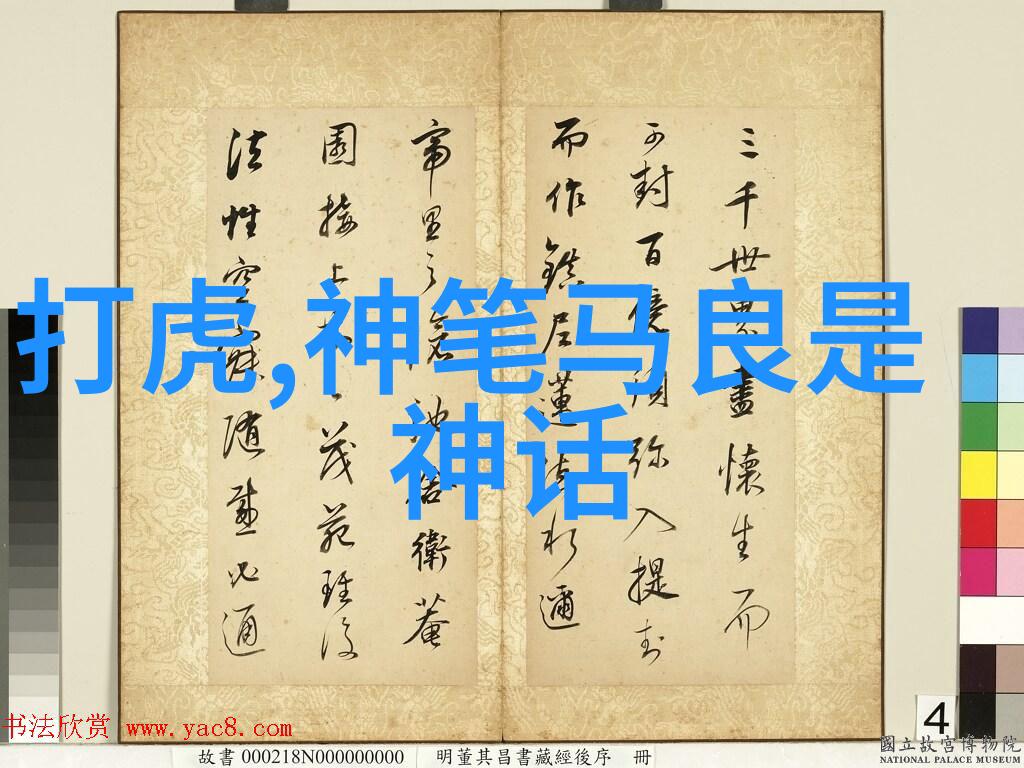 打虎,神笔马良是
神话
三千世界盡懷生而
可封百億須弥入提封
而作鎮尼蓮邇
帝里之池給衛菴
園接上茂苑
法性空隨感必通
书法欣赏 www.yac8.com
故書 000218N000000000 明董其昌書藏經後序 冊
4
國立故宮博物院
NATIONAL PALACE MUSEUM